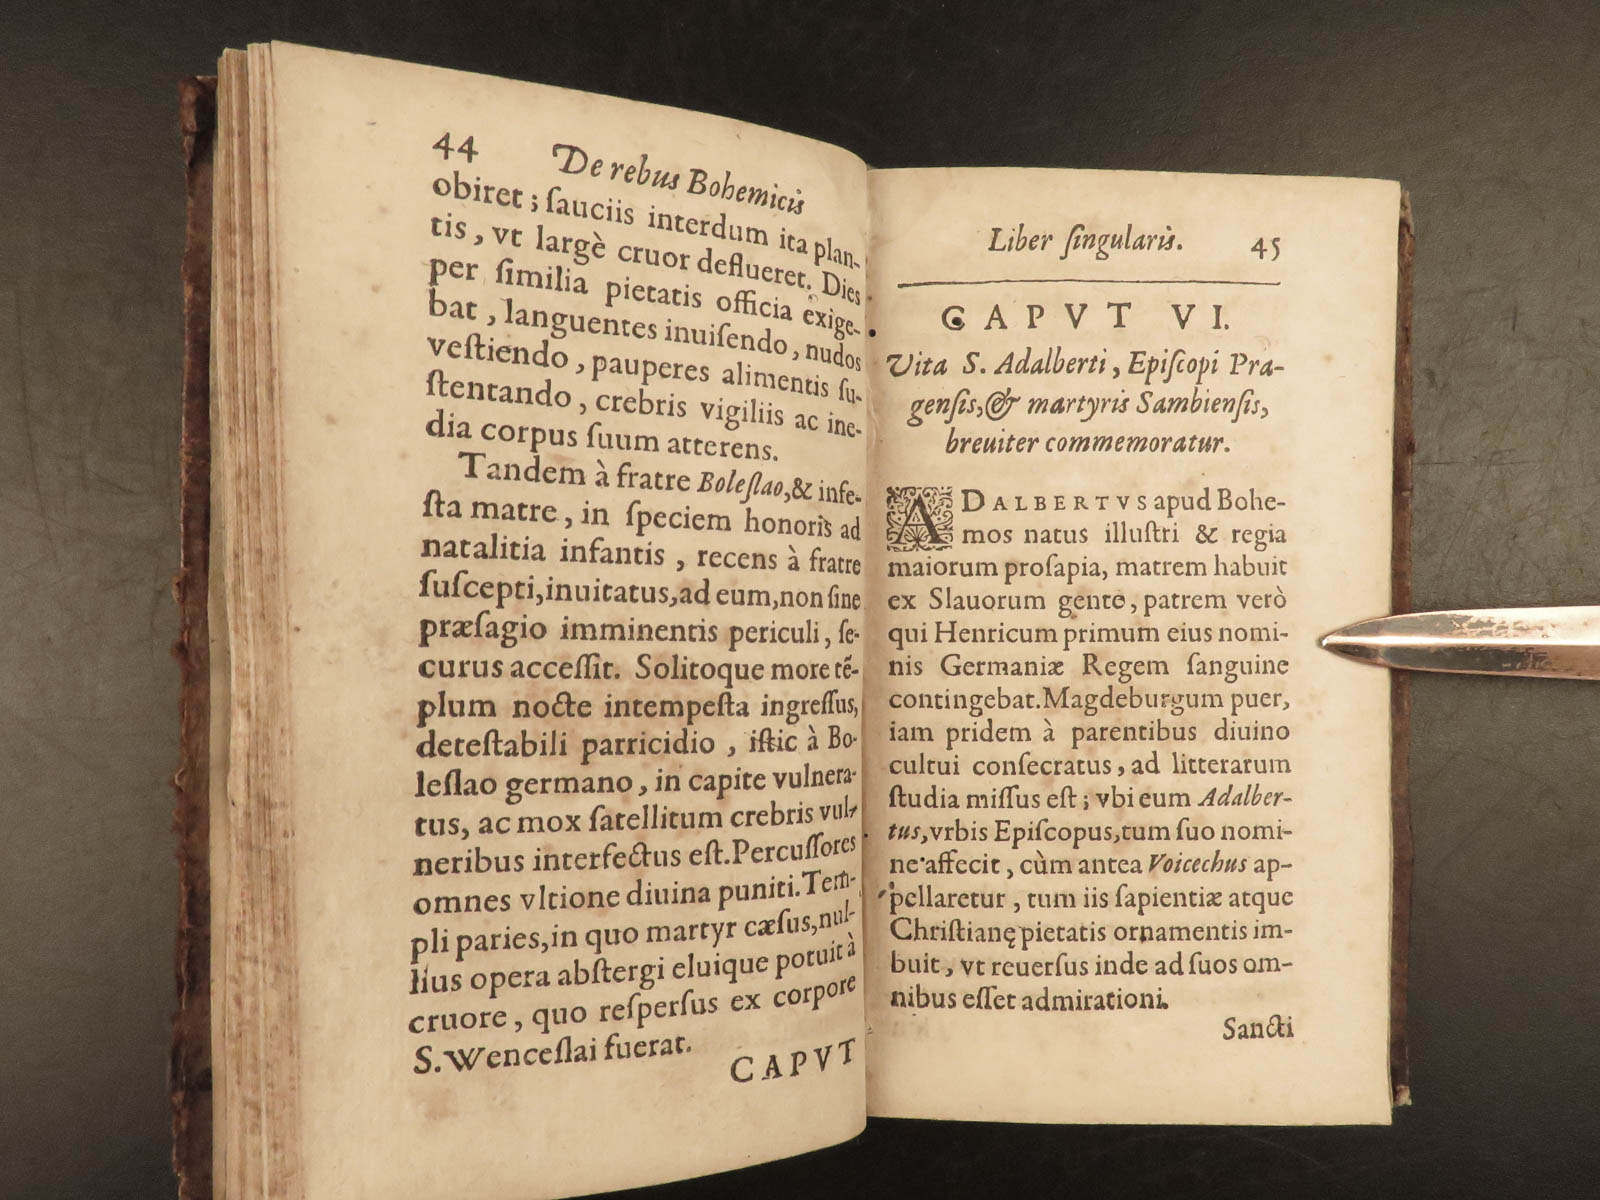 44 De rebus Bohemicis
obiret; ſauciis interdum ita plan-
tis, vt largè cruor deflueret. Dies
per ſimilia pietatis officia exige-
bat, languentes inuiſendo, nudos
veſtiendo, pauperes alimentis ſu-
ſtentando, crebris vigiliis ac ine-
dia corpus ſuum atterens.
Tandem à fratre Boleſlao, & infe-
ſta matre, in ſpeciem honoris ad
natalitia infantis, recens à fratre
ſuſcepti, inuitatus, ad eum, non ſine
præſagio imminentis periculi, ſe-
curus acceſſit. Solitoque more tē-
plum nocte intempeſta ingreſſus,
deteſtabili parricidio, iſtic à Bo-
leſlao germano, in capite vulnera-
tus, ac mox ſatellitum crebris vul-
neribus interfectus eſt. Percuſſores
omnes vltione diuina puniti. Tem-
pli paries, in quo martyr cæſus, nul-
lius opera abſtergi eluique potuit à
cruore, quo reſperſus ex corpore
S. Wenceſlai fuerat.
CAPVT
Liber ſingularis. 45
CAPVT VI.
Vita S. Adalberti, Epiſcopi Pra-
genſis, & martyris Sambienſis,
breuiter commemoratur.
ADALBERTVS apud Bohe-
mos natus illuſtri & regia
maiorum proſapia, matrem habuit
ex Slauorum gente, patrem verò
qui Henricum primum eius nomi-
nis Germaniæ Regem ſanguine
contingebat. Magdeburgum puer,
iam pridem à parentibus diuino
cultui conſecratus, ad litterarum
ſtudia miſſus eſt; vbi eum Adalber-
tus, vrbis Epiſcopus, tum ſuo nomi-
ne affecit, cùm antea Voicechus ap-
pellaretur, tum iis ſapientiæ atque
Chriſtianę pietatis ornamentis im-
buit, vt reuerſus inde ad ſuos om-
nibus eſſet admirationi.
Sancti